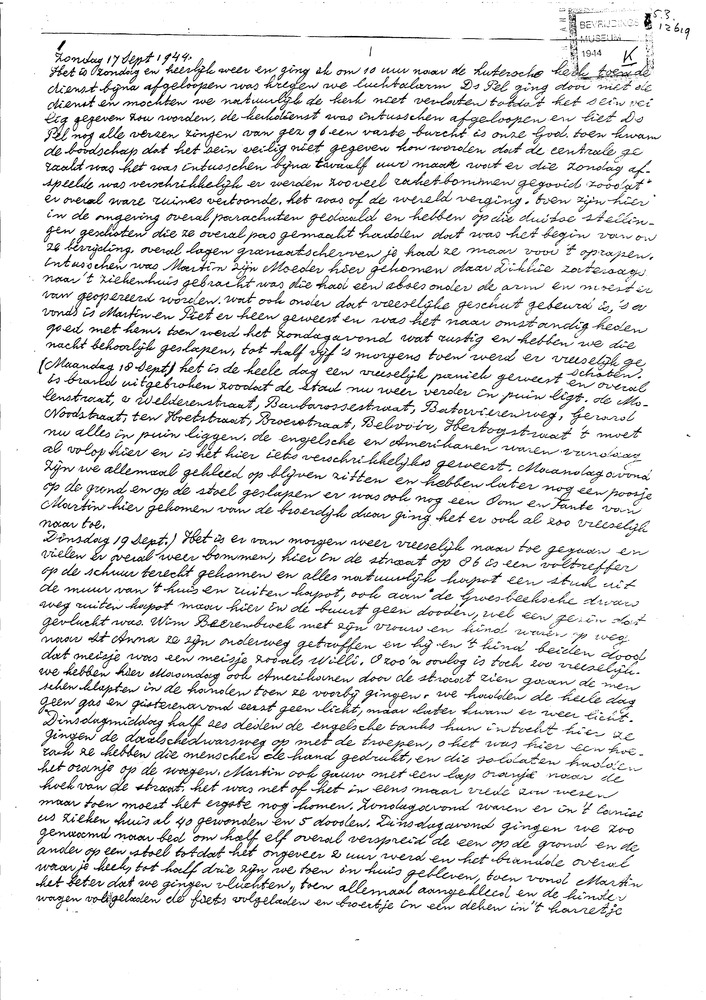 5.3.
12619
BEVRIJDINGS
MUSEUM
1944
K
1
Zondag 17 Sept 1944.
Het is zondag en heerlijk weer en ging ik om 10 uur naar de Lutersche kerk toen de
dienst bijna afgeloopen was kregen we luchtalarm Ds Pel ging door met de
dienst en mochten we natuurlijk de kerk niet verlaten totdat het sein vei
lig gegeven zou worden, de kerkdienst was intusschen afgeloopen en liet Ds
Pel nog alle verzen zingen van gez 96 een vaste burcht is onze God. toen kwam
de boodschap dat het sein veilig niet gegeven kon worden dat de centrale ge
raakt was het was intusschen bijna twaalf uur maar wat er die zondag af-
speelde was verschrikkelijk er werden zooveel raketbommen gegooid zoodat
er overal ware ruines vertoonde, het was of de wereld verging. toen zijn hier
in de omgeving overal parachuten gedaald en hebben op die duitse stellin-
gen geschoten die ze overal pas gemaakt hadden dat was het begin van on
ze bevrijding. overal lagen granaatscherven je had ze maar voor 't oprapen.
intusschen was Martin zijn Moeder hier gekomen daar Dikkie zaterdags
naar 't ziekenhuis gebracht was die had een abses onder de arm en moest er
van geopereerd worden. wat ook onder dat vreeselijke geschut gebeurd is, 's a
vonds is Martin en Piet er heen geweest en was het naar omstandigheden
goed met hem. toen werd het zondagavond wat rustig en hebben we die
nacht behoorlijk geslapen, tot half vijf 's morgens toen werd er vreeselijk ge
schoten.
(Maandag 18 Sept) het is de heele dag een vreeselijk paniek geweest en overal
is brand uitgebroken zoodat de stad nu weer verder in puin ligt. de Mo-
lenstraat, v Welderenstraat, Barbarossestraat, Batavierenweg, Gerard
Noodstraat, ten Hoetstraat, Broerstraat, Belvoir, Hertogstraat 't moet
nu alles in puin liggen. de engelsche en Amerikanen waren vandaag
al volop hier en is het hier iets verschrikkelijks geweest. Maandagavond
zijn we allemaal gekleed op blijven zitten en hebben later nog een poosje
op de grond en op de stoel geslapen er was ook nog een Oom en Tante van
Martin hier gekomen van de broerdijk daar ging het er ook al zoo vreeselijk
naar toe.
Dinsdag 19 Sept.) Het is er van morgen weer vreeselijk naar toe gegaan en
vielen er overal weer bommen, hier in de straat op 86 is een voltreffer
op de schuur terecht gekomen en alles natuurlijk kapot een stuk uit
de muur van 't huis en ruiten kapot, ook aan de Groesbeeksche dwars
weg ruiten kapot maar hier in de buurt geen dooden, wel een gezin dat
gevlucht was Wim Beerenbroek met zijn vrouw en kind waren op weg
naar St Anna ze zijn onderweg getroffen en hij en 't kind beiden dood
dat meisje was een meisje zooals Willi. O zoo'n oorlog is toch zoo vreeselijk.
we hebben hier Maandag ook Amerikanen door de straat zien gaan de men
schen klapten in de handen toen ze voorbij gingen. we hadden de heele dag
geen gas en gisterenavond eerst geen licht, maar later kwam er weer licht.
Dinsdagmiddag half zes deden de engelsche tanks hun intocht hier ze
gingen de daalschedwarsweg op met de troepen, o het was hier een hoe-
ra ze hebben die menschen de hand gedrukt, en die soldaten hadden
het oranje op de wagen. Martin ook gauw met een lap oranje naar de
hoek van de straat. het was net of het in eens maar vrede zou wezen
maar toen moest het ergste nog komen. Zondagavond waren er in 't Canisi
us ziekenhuis al 40 gewonden en 5 dooden. Dinsdagavond gingen we zoo
genaamd naar bed om half elf overal verspreid de een op de grond en de
ander op een stoel totdat het ongeveer 2 uur werd en het brandde overal
waar je keek, tot half drie zijn we toen in huis gebleven, toen vond Martin
het beter dat we gingen vluchten, toen allemaal aangekleed en de kinder
wagen volgeladen de fiets volgeladen en broertje in een deken in 't karretje